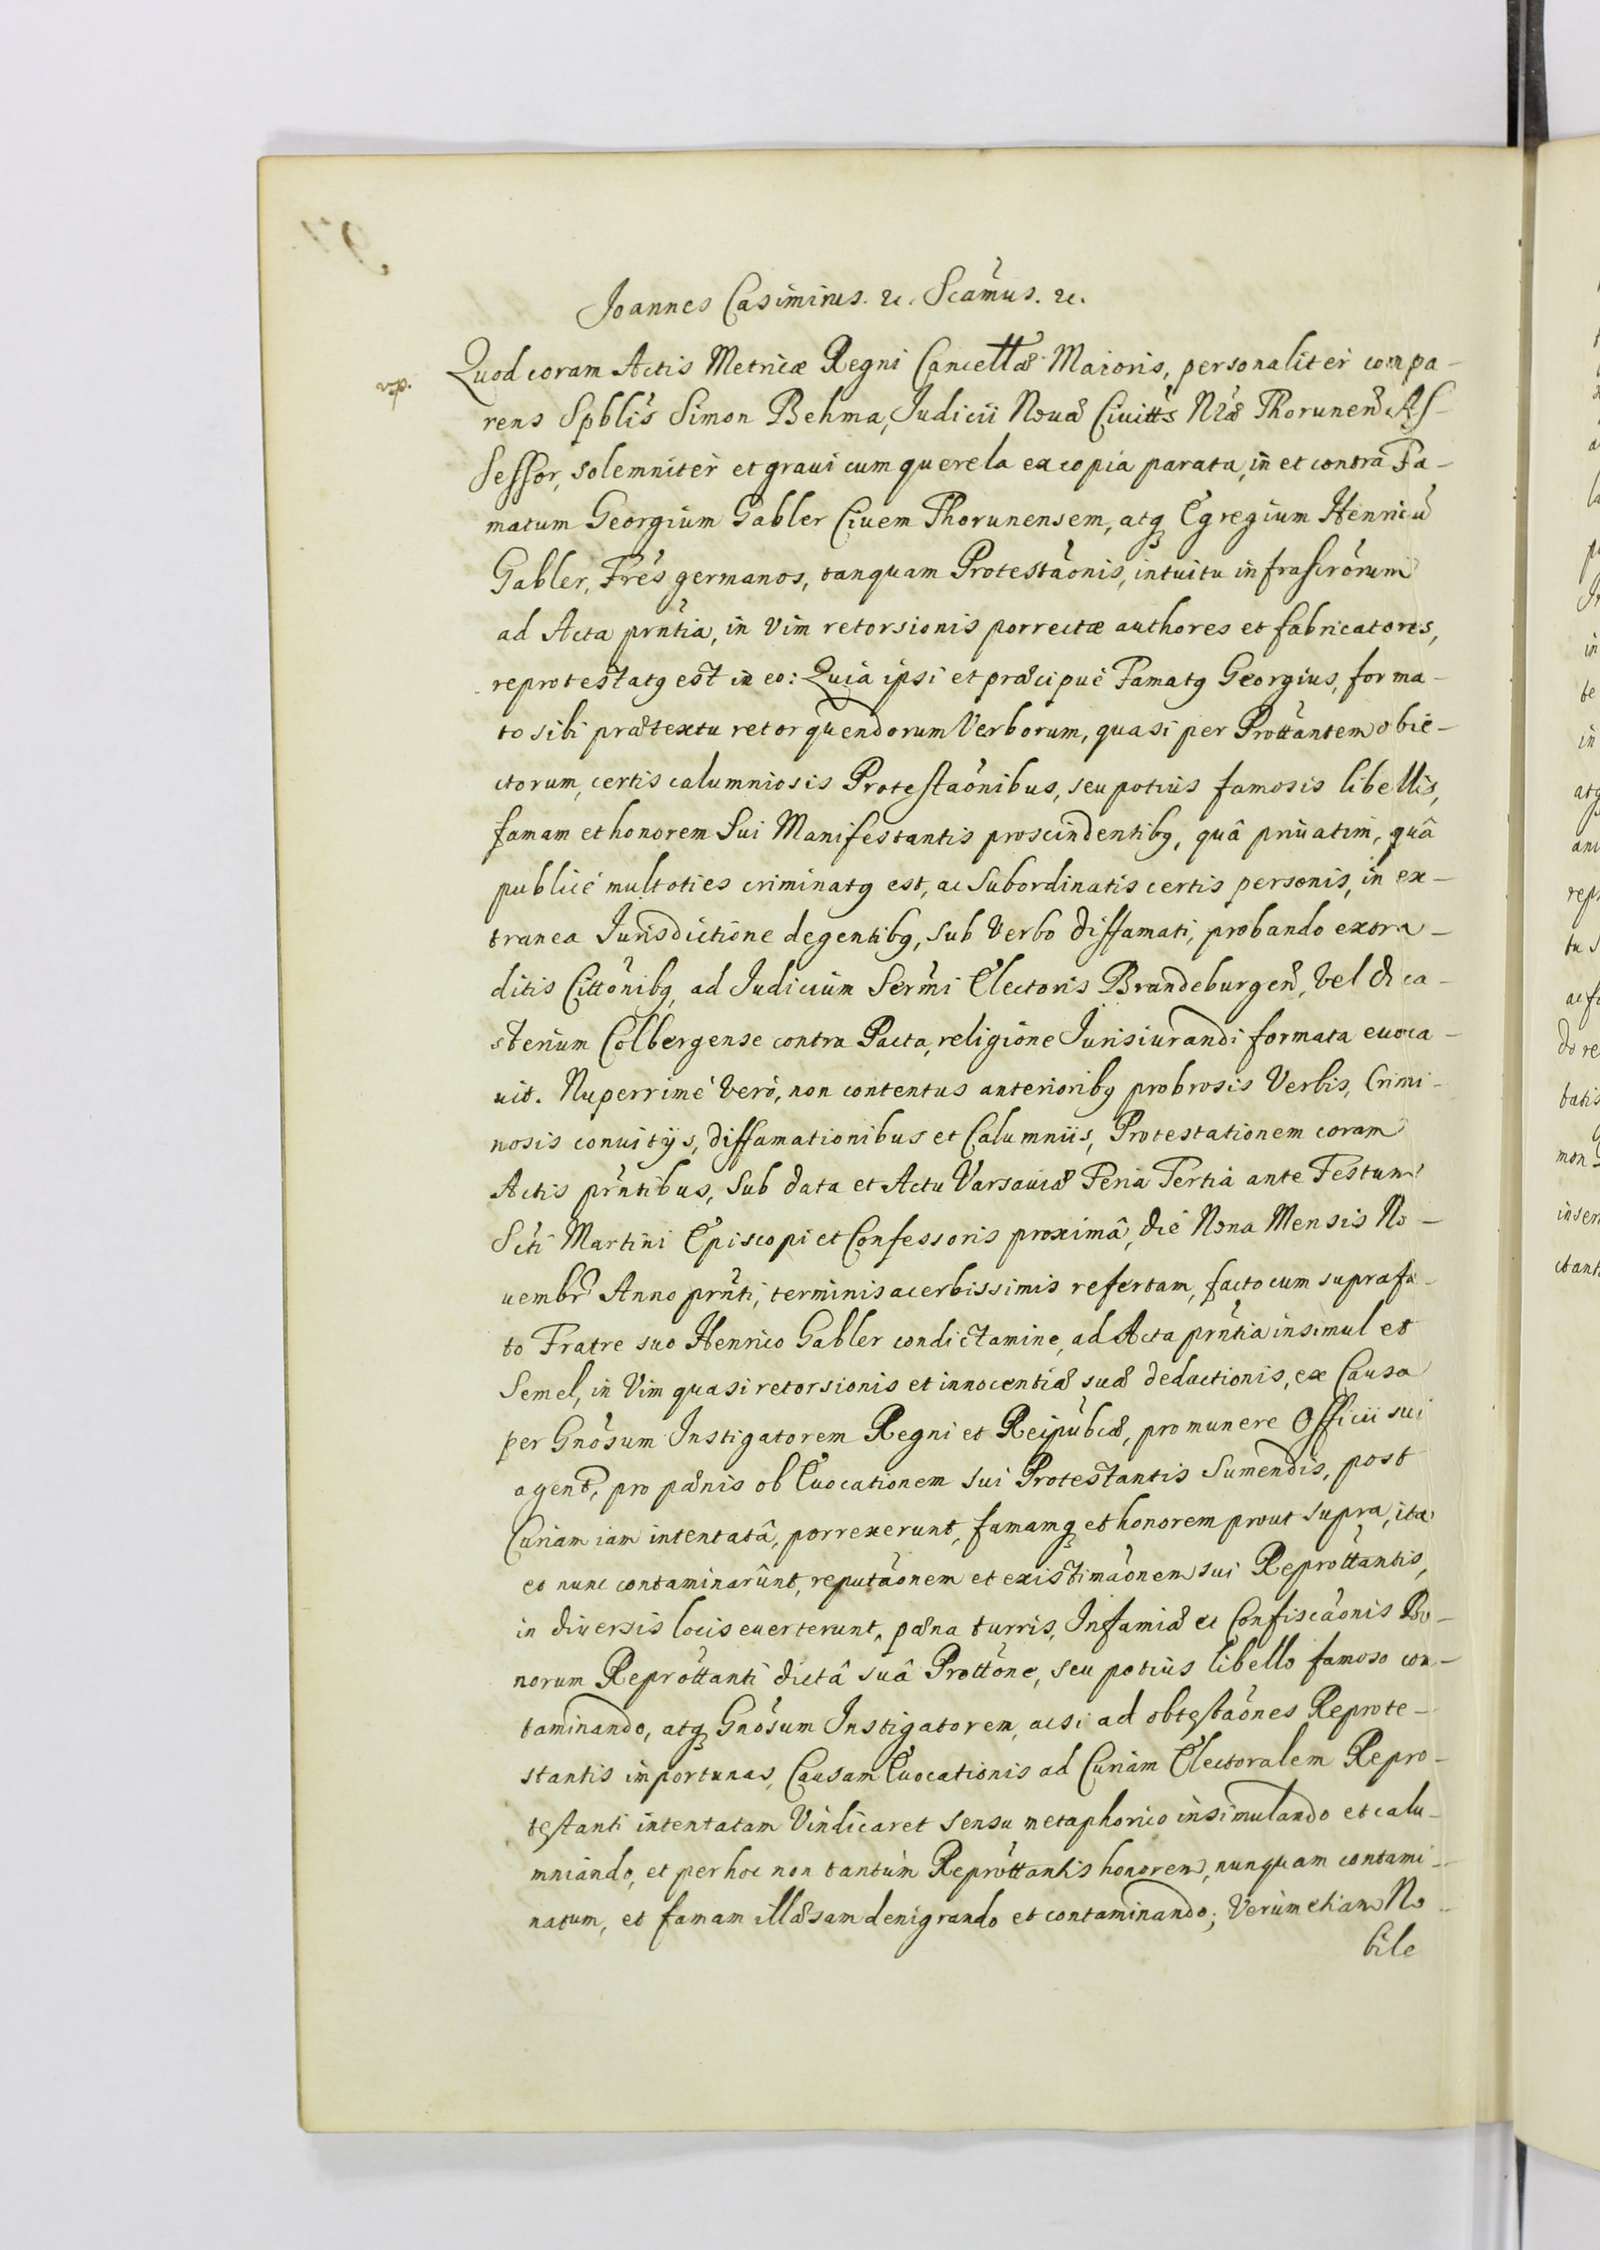 Joannes Casimirus. &c. Scamus. &c.
Quod coram Actis Metricæ Regni Cancellæ Maioris, personaliter compa-
rens Spblis Simon Behma, Judicii Nouæ Ciuitts Nræ Thorunen As-
sessor, solemniter et graui cum querela ex copia parata, in et contra Fa-
matum Georgium Gabler Ciuem Thorunensem, atq Egregium Henricu
Gabler, Fres germanos, tanquam Protestaonis, intuitu infrascrorum
ad Acta prntia, in Vim retorsionis porrectæ authores et fabricatores,
reprotestatq est in eo: Quia ipsi et præcipuè Famatq Georgius, forma-
to sibi prætextu retorquendorum Verborum, quasi per Prottantem obie-
ctorum, certis calumniosis Protestaonibus, seu potius famosis libellis,
famam et honorem Sui Manifestantis proscindentibq, quâ priuatim, quâ
publicè multoties criminatq est, ac Subordinatis certis personis, in ex-
tranea Jurisdictione degentibq, sub Verbo diffamati, probando extra-
ditis Cittonibq, ad Judicium Sermi Electoris Brandeburgen, vel dica-
sterium Colbergense contra Pacta, religione Jurisiurandi formata euoca-
uit. Nuperrimè Verò, non contentus anterioribq probrosis Verbis, Crimi-
nosis conuitijs, diffamationibus et Calumniis, Protestationem coram
Actis prntibus, sub data et Actu Varsauiæ Feria Tertia ante Festum
Scti Martini Episcopi et Confessoris proximâ, die Nona Mensis No-
uembr Anno prnti, terminis acerbissimis refertam, facto cum suprafa-
to Fratre suo Henrico Gabler condictamine, ad Acta prntia insimul et
Semel, in Vim quasi retorsionis et innocentiæ suæ deductionis, ex Causa
per Gnosum Instigatorem Regni et Reipubcæ, pro munere Officii sui
agent, pro pænis ob Euocationem sui Protestantis Sumendis, post
Curiam iam intentatâ, porrexerunt, famamq et honorem prout supra, ita
et nunc contaminarûnt, reputaonem et existimaonem sui Reprottantis,
in diuersis locis euerterunt, pæna turris, Infamiæ et Confiscaonis Bo-
norum Reprottanti dictâ suâ Prottone, seu potius libello famoso con-
taminando, atq Gnosum Instigatorem, acsi ad obtestaones Reprote-
stantis importunas, Causam Euocationis ad Curiam Electoralem Repro-
testanti intentatam Vindicaret sensu metaphorico insimulando et calu-
mniando, et per hoc non tantùm Reprottantis honorem, nunquam contami-
natum, et famam illæsam denigrando et contaminando; Verùm etiam No-
bile